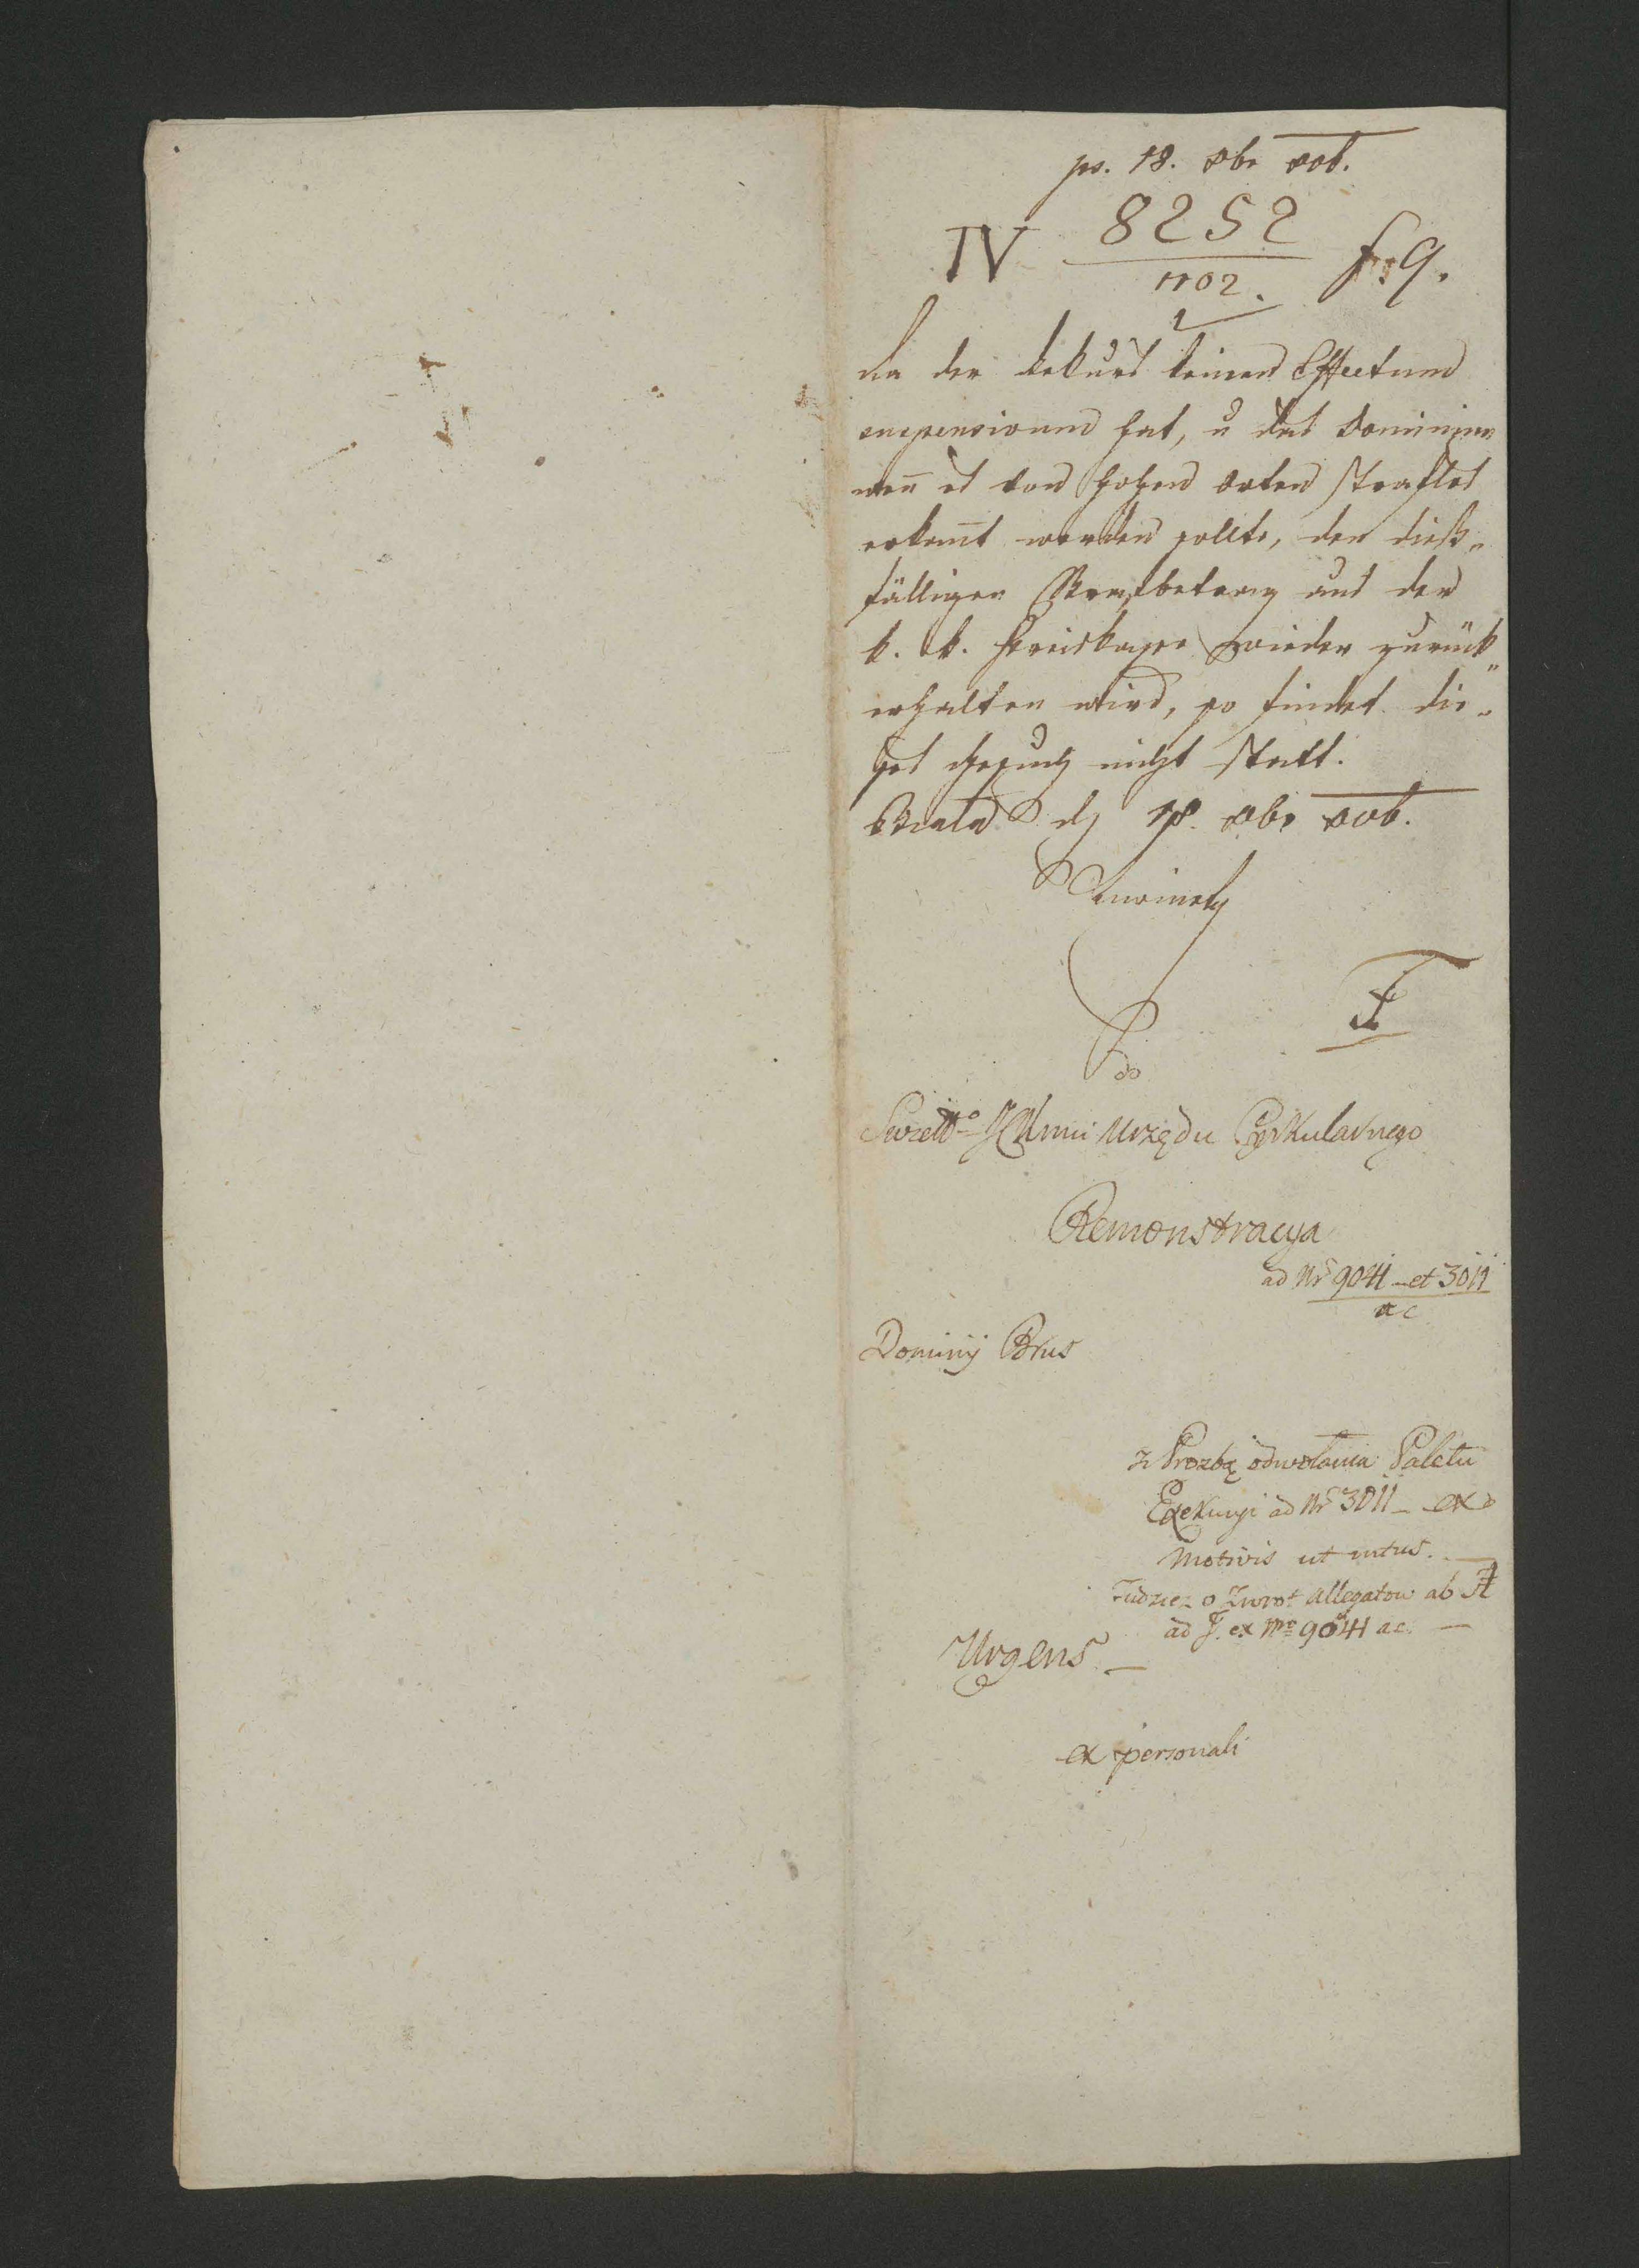 ps. 18. 8br 806.
IV 8252 f: 9.
1702.
da der Rekurs keinen Effectum
suspensivum hat, u das Dominium
wen̅ es von hohen Orten straflos
erkan̅t werden sollte, den dieß„
fälligen Strafbetrag aus der
k. k. Kreiskasse wieder zurück„
erhalten wird, so findet die„
ses Gesuch nicht statt.
Biala d 18. 8br 806.
F
do
Urzędu Cyrkularnego
Remonstracya
ad Nr 9041 et 3011
a c
Dominij Brus
z Prozbą odwołania Paletu
Exekucyi ad Nr 3011 – ex
Motivis ut intus.
Tudziez o Zwrot allegatow ab A
ad F. ex Nro 9041 a c. –
Urgens –
ex personali